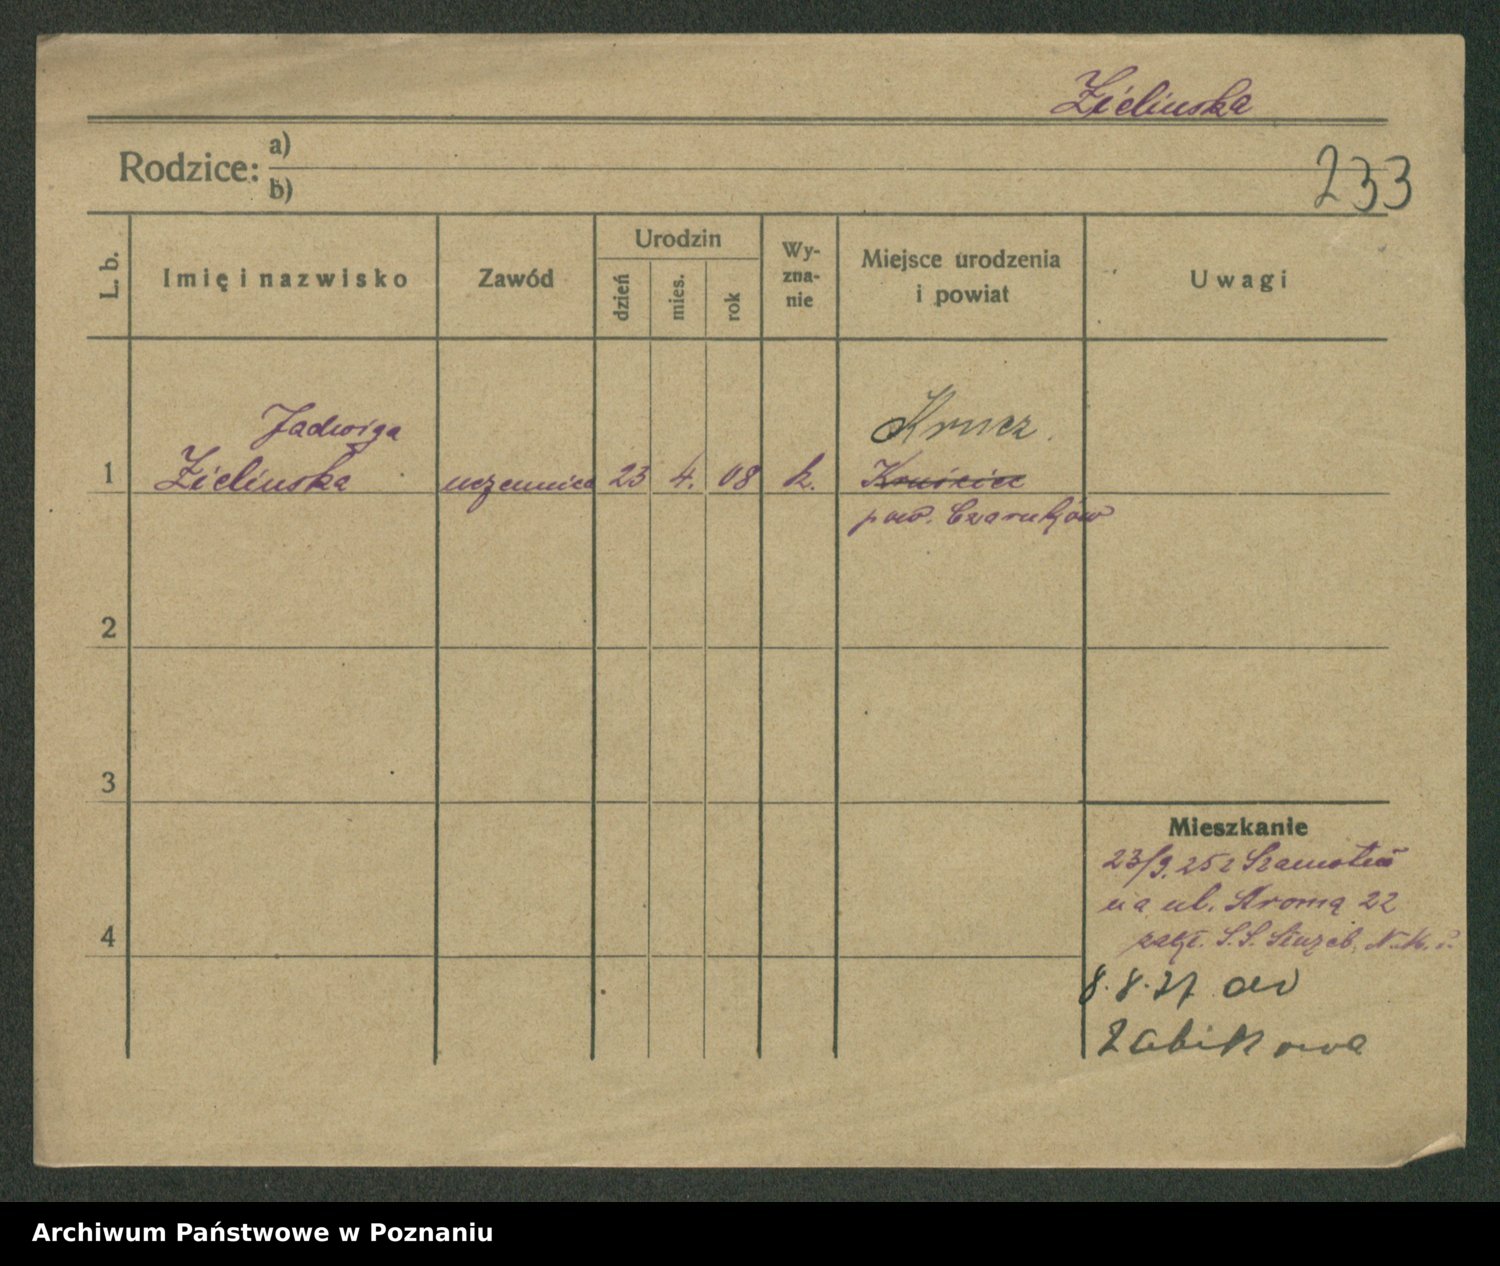 Zielinska
Rodzice: a)
b)
233
L. b.
Imię i nazwisko
Zawód
Urodzin
dzień
mies.
rok
Wy-
zna-
nie
Miejsce urodzenia
i powiat
Uwagi
Jadwiga
Krucz.
1 Zielinska uczennica 23 4. 08 k.
pow. Czarnków
2
3
4
Mieszkanie
23/9. 25 z Szamotuł
na ul. Kromą 22
S.S. N.M.P.
8.8.27 do
Zabikowa
Archiwum Państwowe w Poznaniu